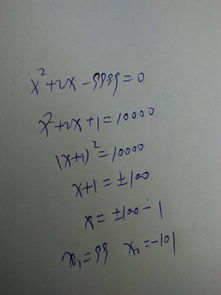 x²+2x-9999=0
x²+2x+1=10000
(x+1)²=10000
x+1=±100
x=±100-1
x₁=99 x₂=-101